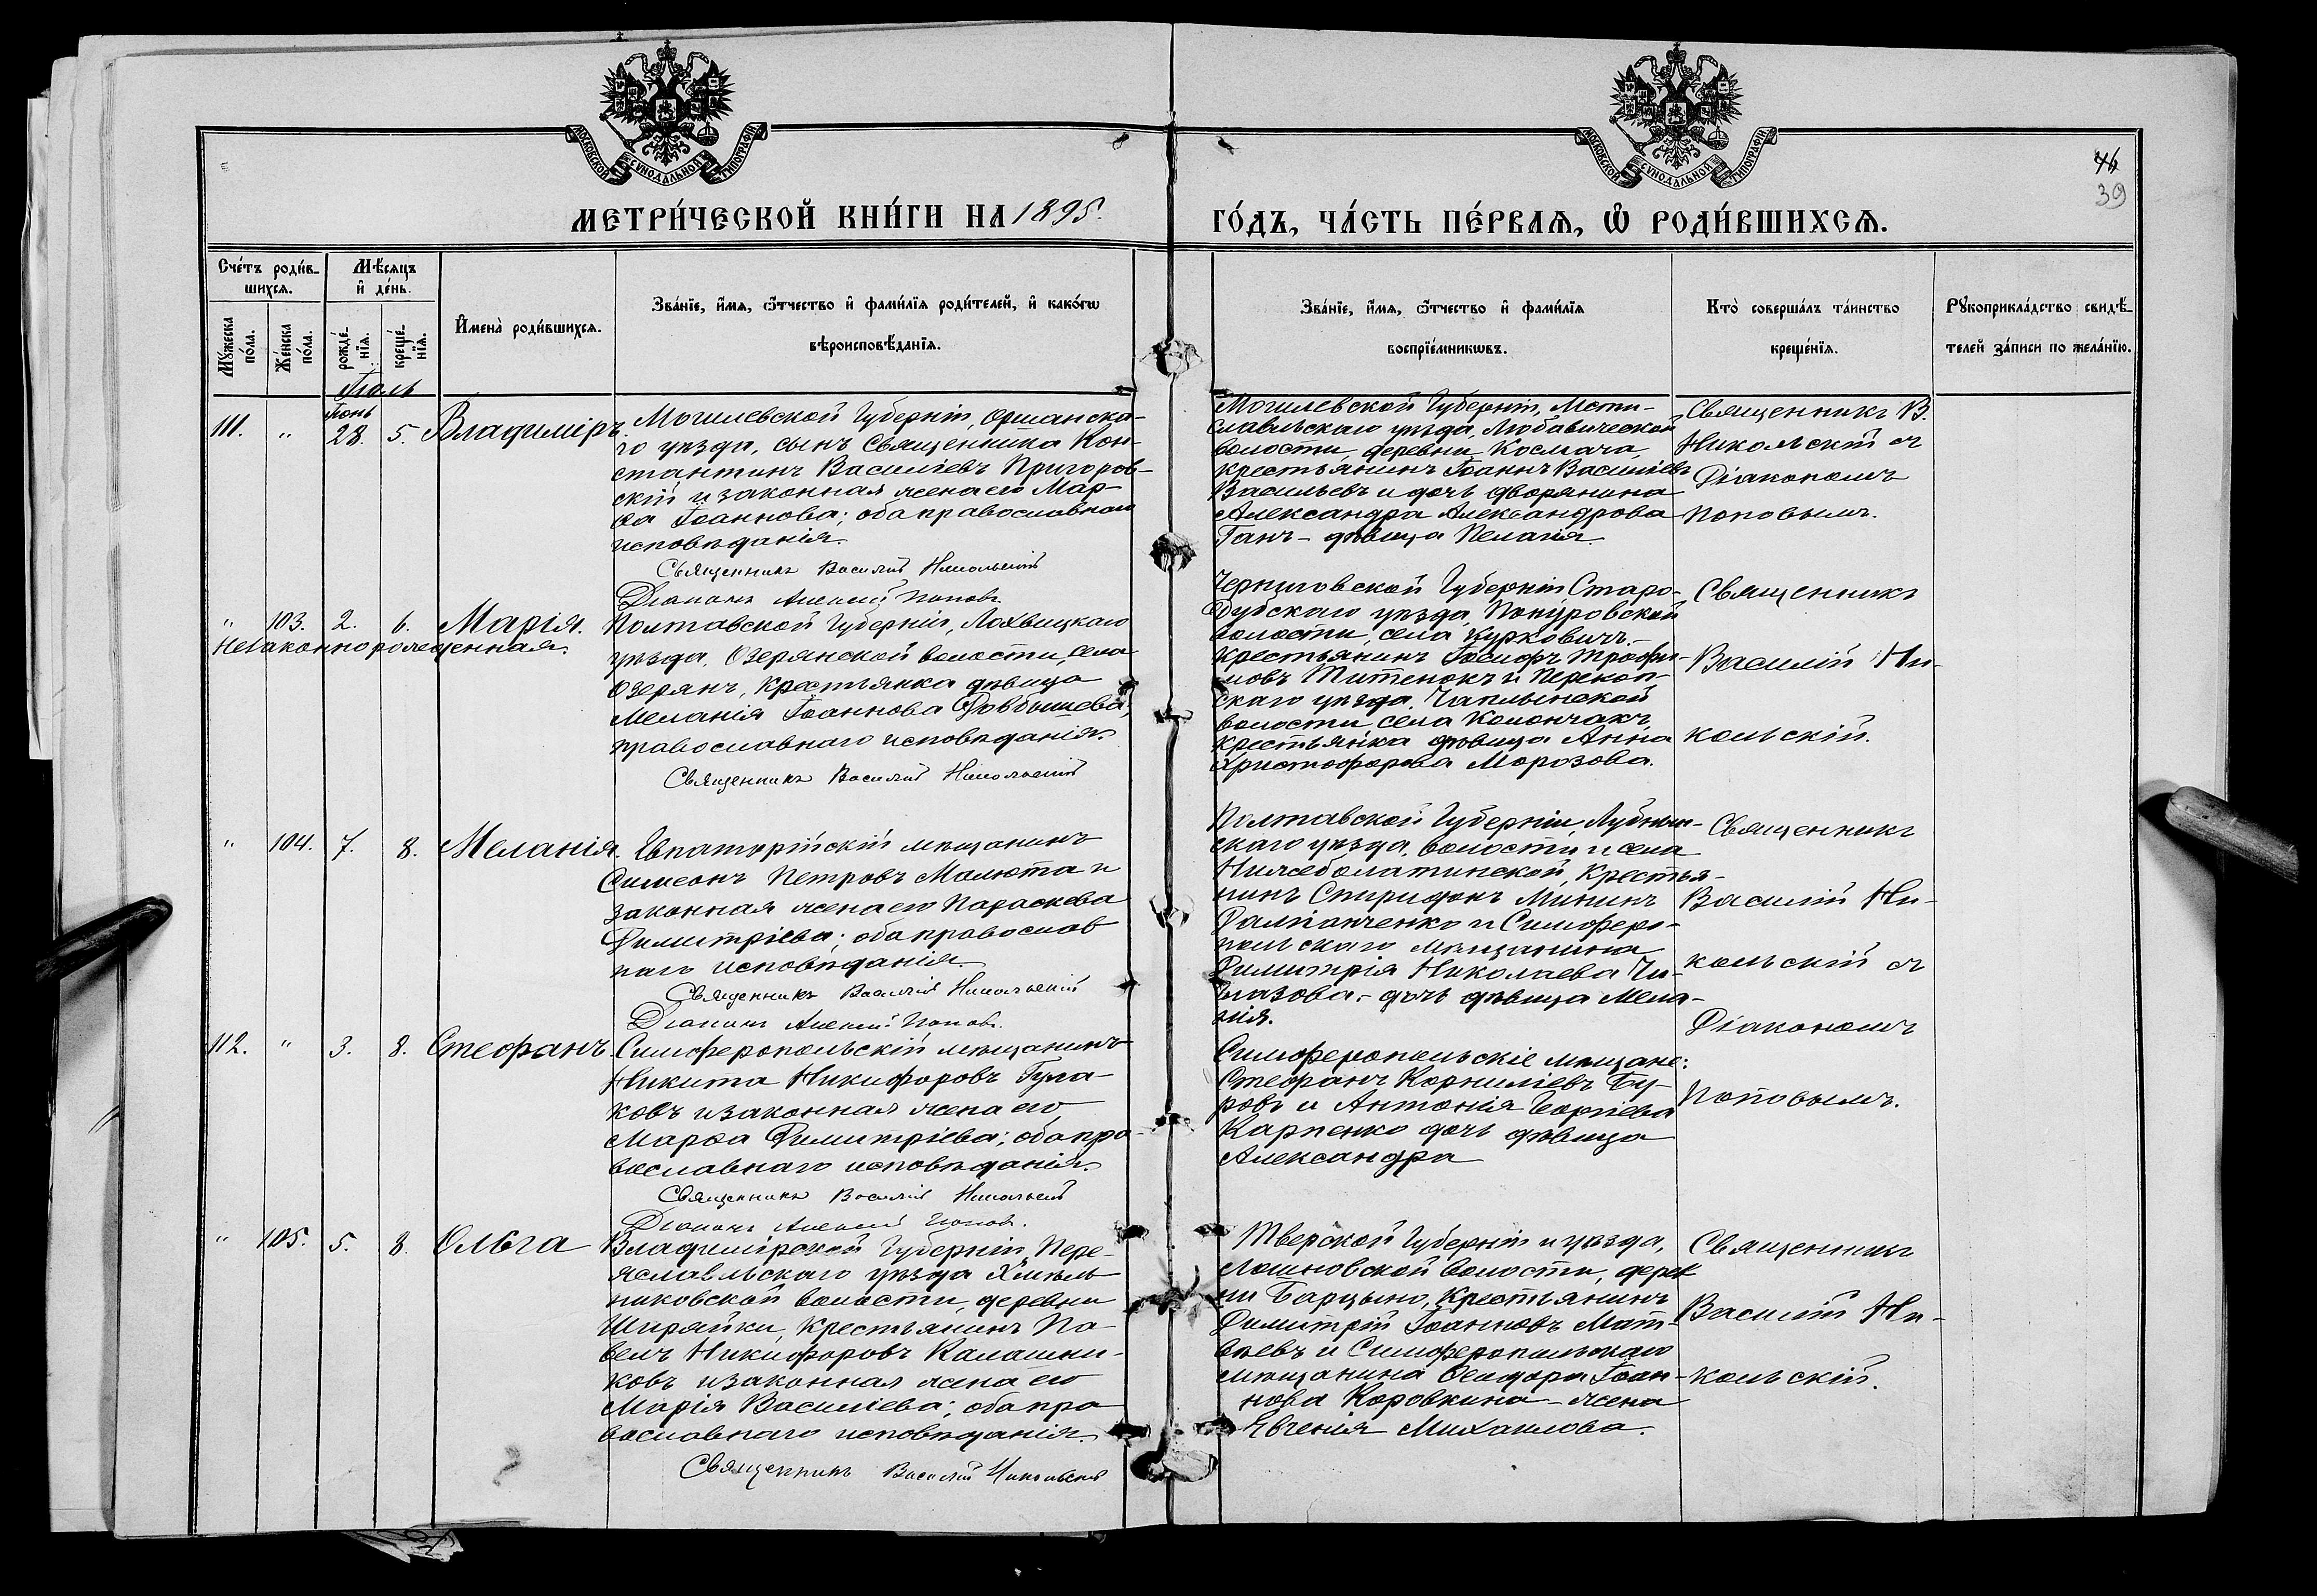 МОСКОВСКОЙ СѴНОДАЛЬНОЙ ТИПОГРАФІИ
МОСКОВСКОЙ СѴНОДАЛЬНОЙ ТИПОГРАФІИ
39
МЕТРИ́ЧЕСКОЙ КНИ́ГИ НА 1895.
ГО́ДЪ, ЧА́СТЬ ПЕ́РВАѦ, Ѡ҆ РОДИ́ВШИХСѦ.
Сче́тъ роди́в-
шихсѧ.
Мѣ́сяцъ
и҆ де́нь.
Мꙋ́жеска
по́ла.
Же́нска
по́ла.
рожде́-
нїѧ.
креще́-
нїѧ.
И҆мена̀ роди́вшихсѧ.
Зва́нїе, и҆́мѧ, ѻ҆́тчество и҆ фами́лїѧ роди́телей, и҆ како́гѡ
вѣроисповѣ́данїѧ.
Зва́нїе, и҆́мѧ, ѻ҆́тчество и҆ фами́лїѧ
воспрїе́мникѡвъ.
Кто̀ соверша́лъ та́инство
креще́нїѧ.
Рꙋкоприкла́дство свидѣ́-
телей за́писи по жела́нїю.
Іюль
Іюнь
111. " 28. 5. Владиміръ.
Могилевской Губерніи, Оршанска-
го уѣзда, сынъ Священника Кон-
стантинъ Василіевъ Пригоров-
скій и законная жена его Мар-
ѳа Іоаннова; оба православнаго
исповѣданія.
Священникъ Василій Никольскій
Діаконъ Алексій Поповъ.
Могилевской Губерніи, Мсти-
славльскаго уѣзда, Любавической
волости, деревни Космача,
крестьянинъ Іоаннъ Василіевъ
Васильевъ и дочь дворянина
Александра Александрова
Ганъ - дѣвица Пелагія.
Священникъ В.
Никольскій съ
Діакономъ
Поповымъ.
" 103. 2. 6. Марія.
Незаконнорожденная.
Полтавской Губерніи, Лохвицкаго
уѣзда, Озерянской волости, села
Озерянъ, крестьянка дѣвица
Меланія Іоаннова Довбышева,
православнаго исповѣданія.
Священникъ Василій Никольскій
Черниговской Губерніи Старо-
дубскаго уѣзда, Понуровской
волости, села Курковичъ,
крестьянинъ Іосифъ Трофи-
мовъ Титенокъ и Перекоп-
скаго уѣзда, Чаплынской
волости, села Колончакъ,
крестьянка дѣвица Анна
Христофорова Морозова.
Священникъ
Василій Ни-
кольскій.
" 104. 7. 8. Меланія.
Евпаторійскій мѣщанинъ
Симеонъ Петровъ Малюта и
законная жена его Параскева
Димитріева; оба православ
наго исповѣданія.
Священникъ Василій Никольскій
Діаконъ Алексій Поповъ.
Полтавской Губерніи, Лубнын-
скаго уѣзда, волости и села
Нижебулатинской, крестья-
нинъ Спиридонъ Мининъ
и Симферо-
польскаго мѣщанина
Димитрія Николаева Чи-
глазова - дочь дѣвица Мела-
нія.
Священникъ
Василій Ни-
кольскій съ
Діакономъ
Поповымъ.
112. " 3. 8. Стефанъ.
Симферопольскій мѣщанинъ
Никита Никифоровъ Гула-
ковъ и законная жена его
Марѳа Димитріева; оба пра-
вославнаго исповѣданія.
Священникъ Василій Никольскій
Діаконъ Алексій Поповъ.
Симферопольскіе мѣщане:
Стефанъ Корниліевъ Бу-
ровъ и Антонія Георгіева
Карпенко дочь дѣвица
Александра
" 105. 5. 8. Ольга
Владимірской Губерніи, Пере-
яславльскаго уѣзда Хмѣль-
никовской волости, деревни
Ширяйки, крестьянинъ Па-
велъ Никифоровъ Калашни-
ковъ и законная жена его
Марія Василіева; оба пра
вославнаго исповѣданія.
Священникъ Василій Никольскій
Тверской Губерніи и уѣзда,
волости, дерев
ни Барцыно, крестьянинъ
Димитрій Іоанновъ Мат-
вѣевъ и Симферопольскаго
мѣщанина Ѳеодора Іоан-
нова Коровкина - жена
Евгенія Михаилова.
Священникъ
Василій Ни-
кольскій.